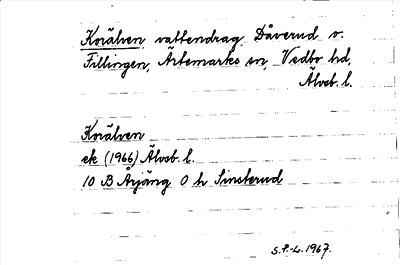 Korälven, vattendrag, Dåverud v.
Fillingen, Ärtemarks sn, Vedbo hd,
Älvsb. l.
Korälven
ek (1966) Älvsb. l.
10 B Årjäng 0 h Sinsterud
S.P-L. 1967.